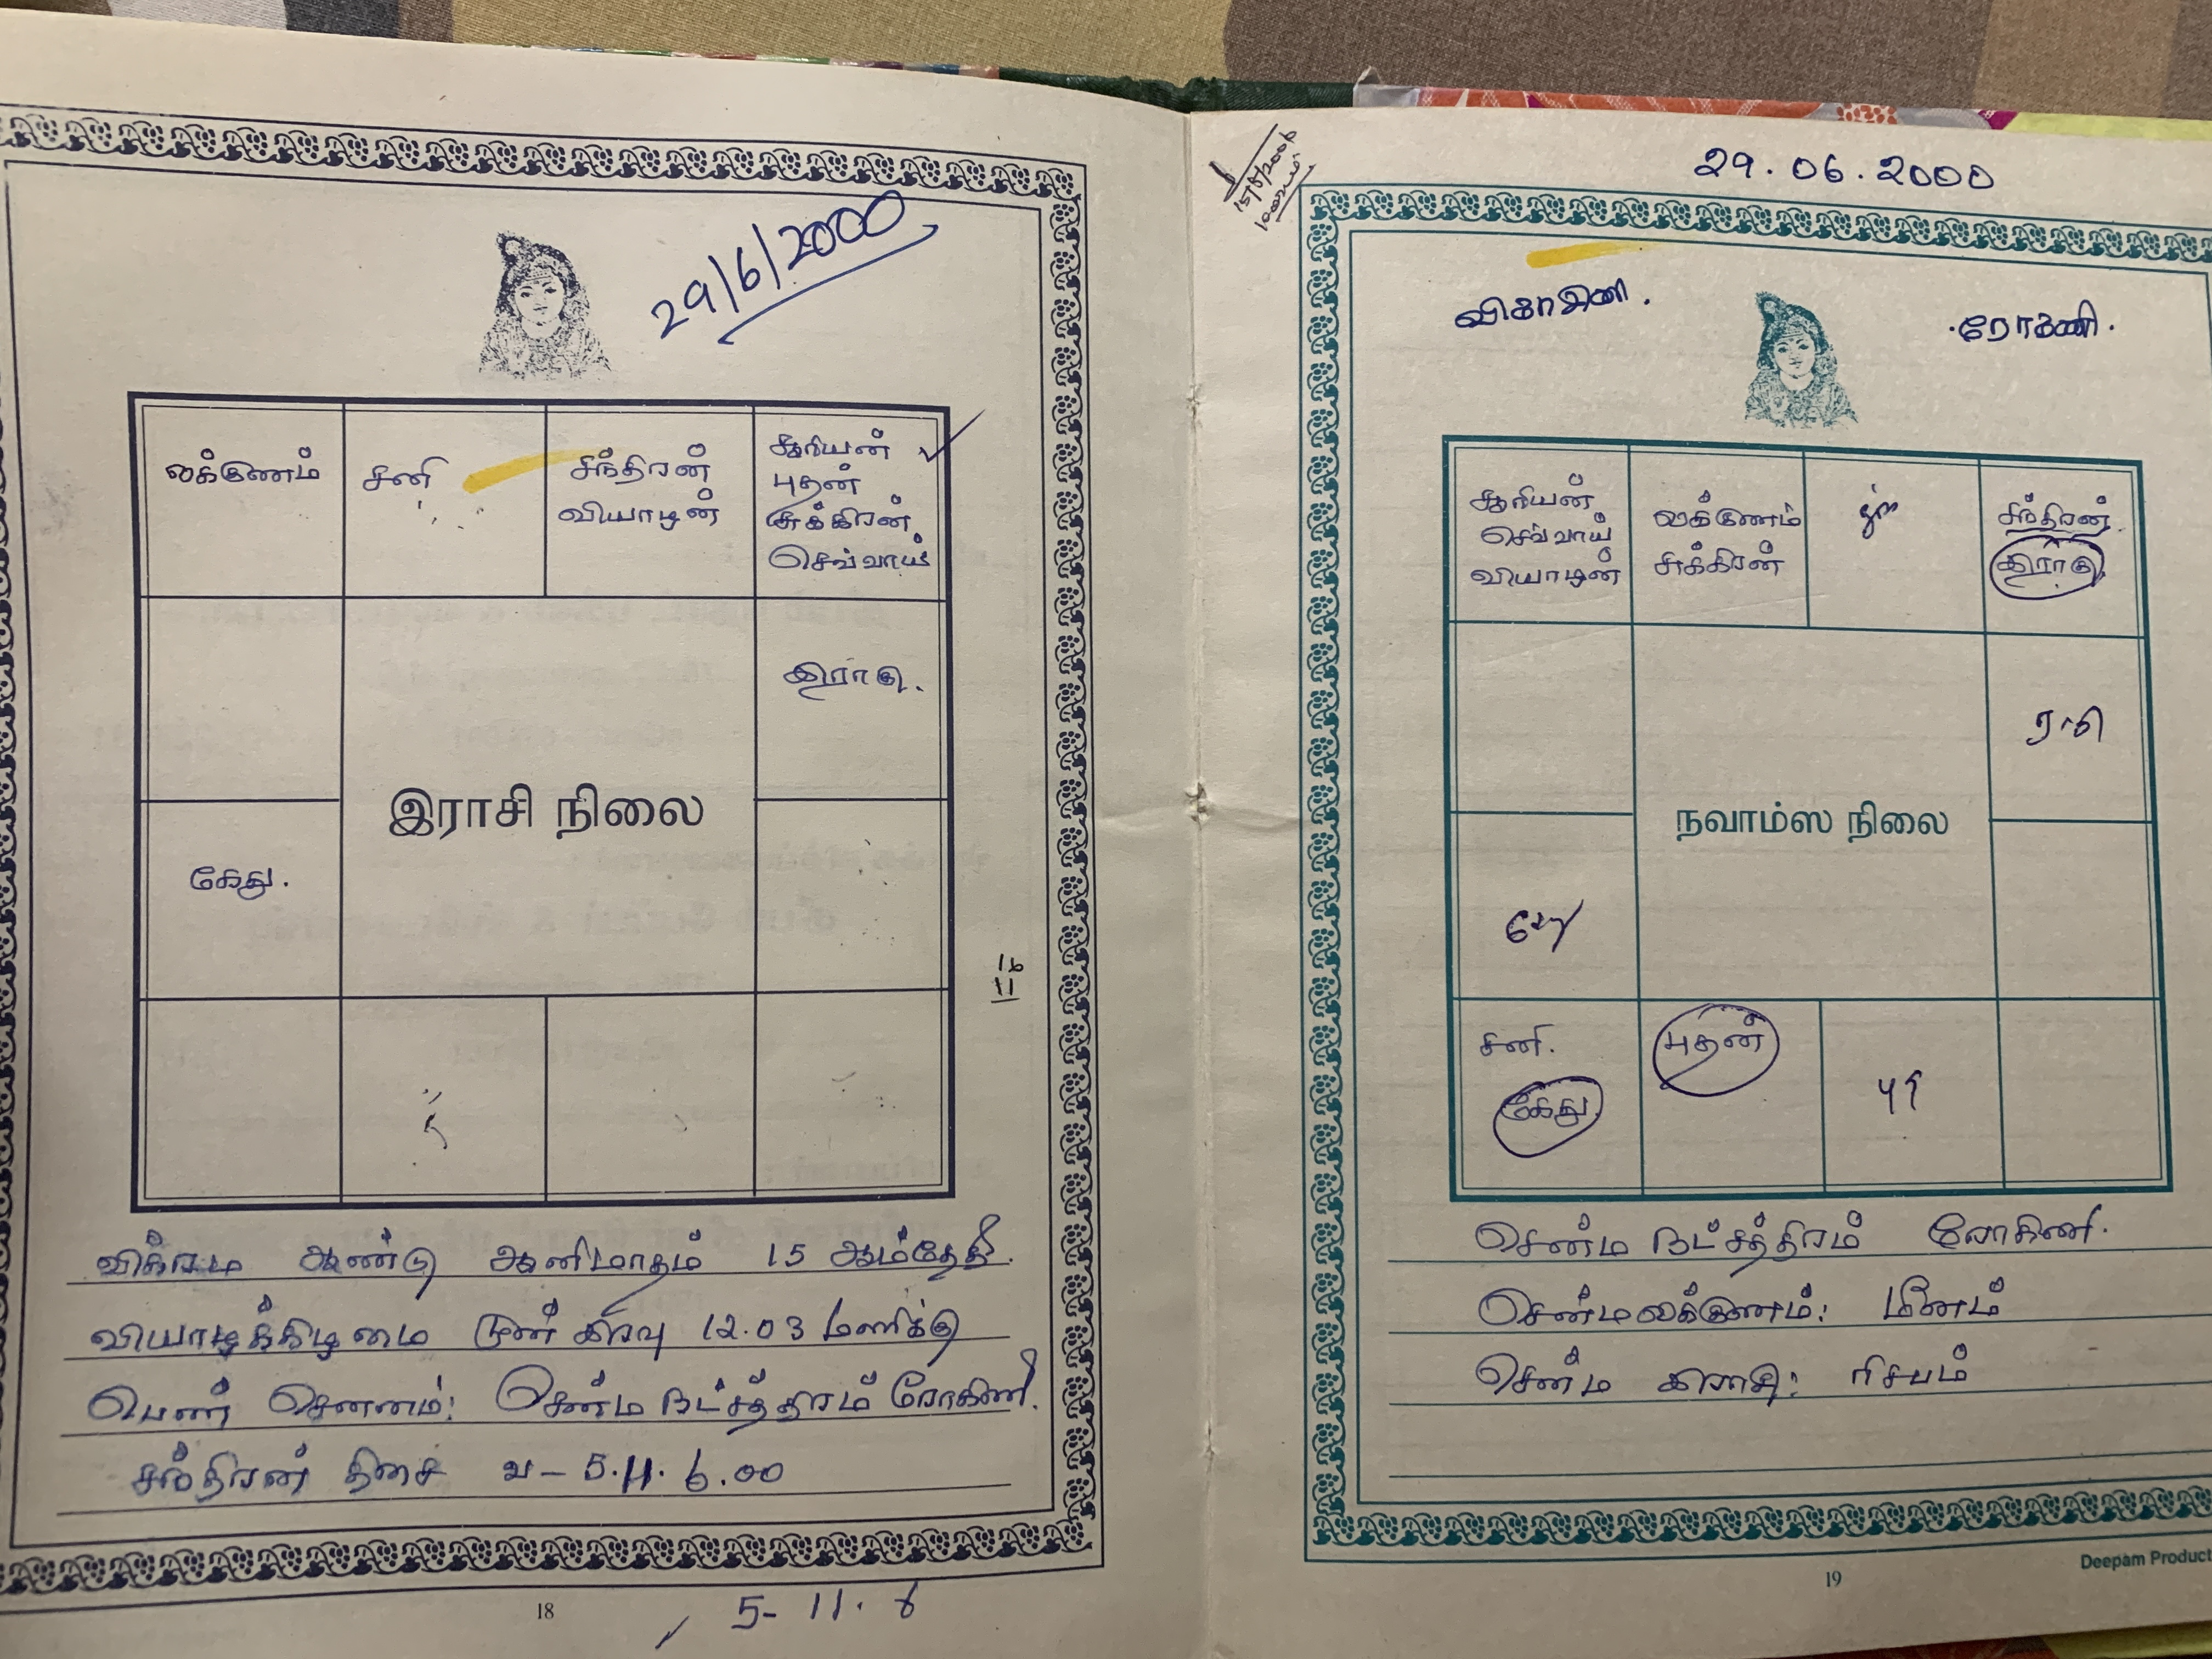 29/6/2000
லக்குணம்
சனி
சந்திரன்
வியாழன்
சூரியன்
புதன்
சுக்கிரன்
செவ்வாய்
இராகு.
இராசி நிலை
கேது.
விக்ரம ஆண்டு ஆனிமாதம் 15 ஆம்தேதி.
வியாழக்கிழமை முன் இரவு 12.03 மணிக்கு
பெண் செனனம்: சென்ம நட்சத்திரம் ரோகிணி.
சந்திரன் திசை வ - 5.11.6.00
18
5- 11. 6
15/8/2006
29.06.2000
ரோகணி.
சூரியன்
செவ்வாய்
வியாழன்
லக்குணம்
சுக்கிரன்
சந்திரன்.
இராகு.
நவாம்ஸ நிலை
சனி.
கேது.
புதன்
சென்ம நட்சத்திரம் ரோகிணி.
சென்மலக்குணம்: மீனம்
சென்ம இராசி: ரிசபம்
19
Deepam Product